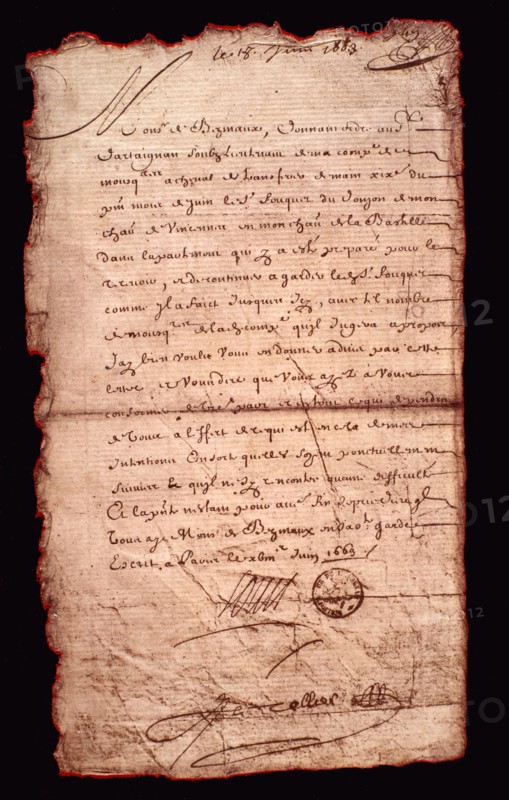 le 18. Juin 1663
Mons.r de Bezmaux, Donnant ordre au S.r
Dartaignan soubzlieutenant de ma comp.e de
mousq.res a cheval de transferer demain xix.e du
pnt mois de Juin le S.r fouquet du Donjon de mon
chau de Vincennes en mon chau de la Bastille
dans lapartement qui y a esté preparé pour le
recevoir, et de continuer a garder led. S.r fouquet
comme il a faict Jusques Icy, avec tel nombre
de mousq.res de lad. comp.e quil Jugera a propos
Jay bien voulu vous en donner advis par cette
lettre et vous dire que vous ayez a vous
conformer et tout ce qui
de vous a l'effect de ce qui est en cela de mes
Intentions En sorte quelles soyent ponctuellement
suivies & quil ne sy rencontre aucune difficulté
Et la pnte nestant pour autre fin Je prie Dieu quil
vous aye Mons.r de Bezmaux en sa s.te garde
Escrit a Paris le xviii.e Juin 1663
Louis
Le Tellier